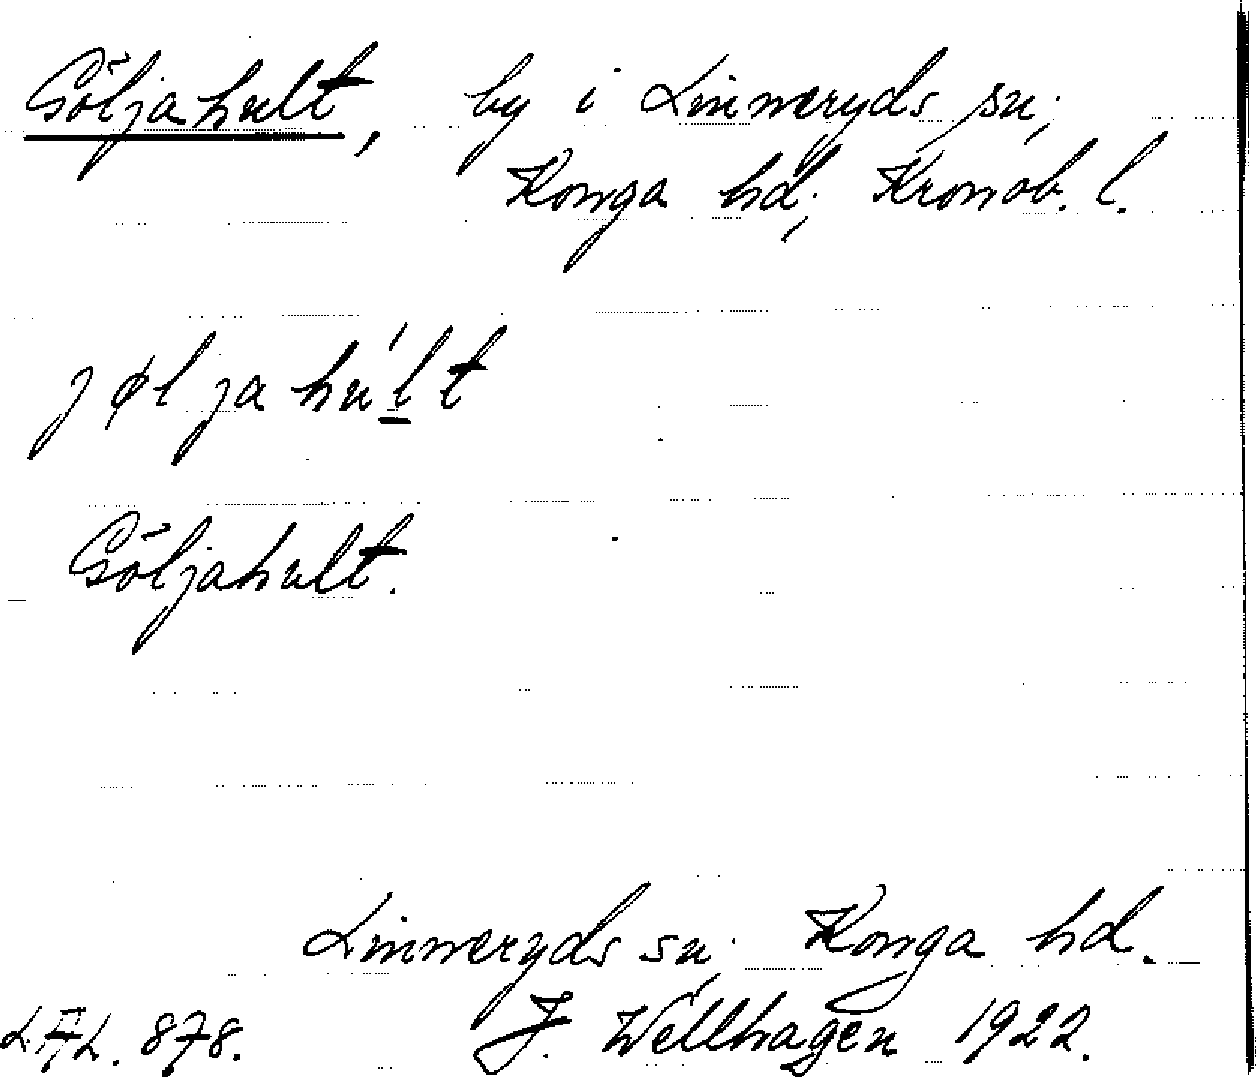 Göljahult, by i Linneryds sn;
Konga hd; Kronob. l.
jøl ja hu'lt
Göljahult.
Linneryds sn; Konga hd.
J. Wellhagen 1922.
878.